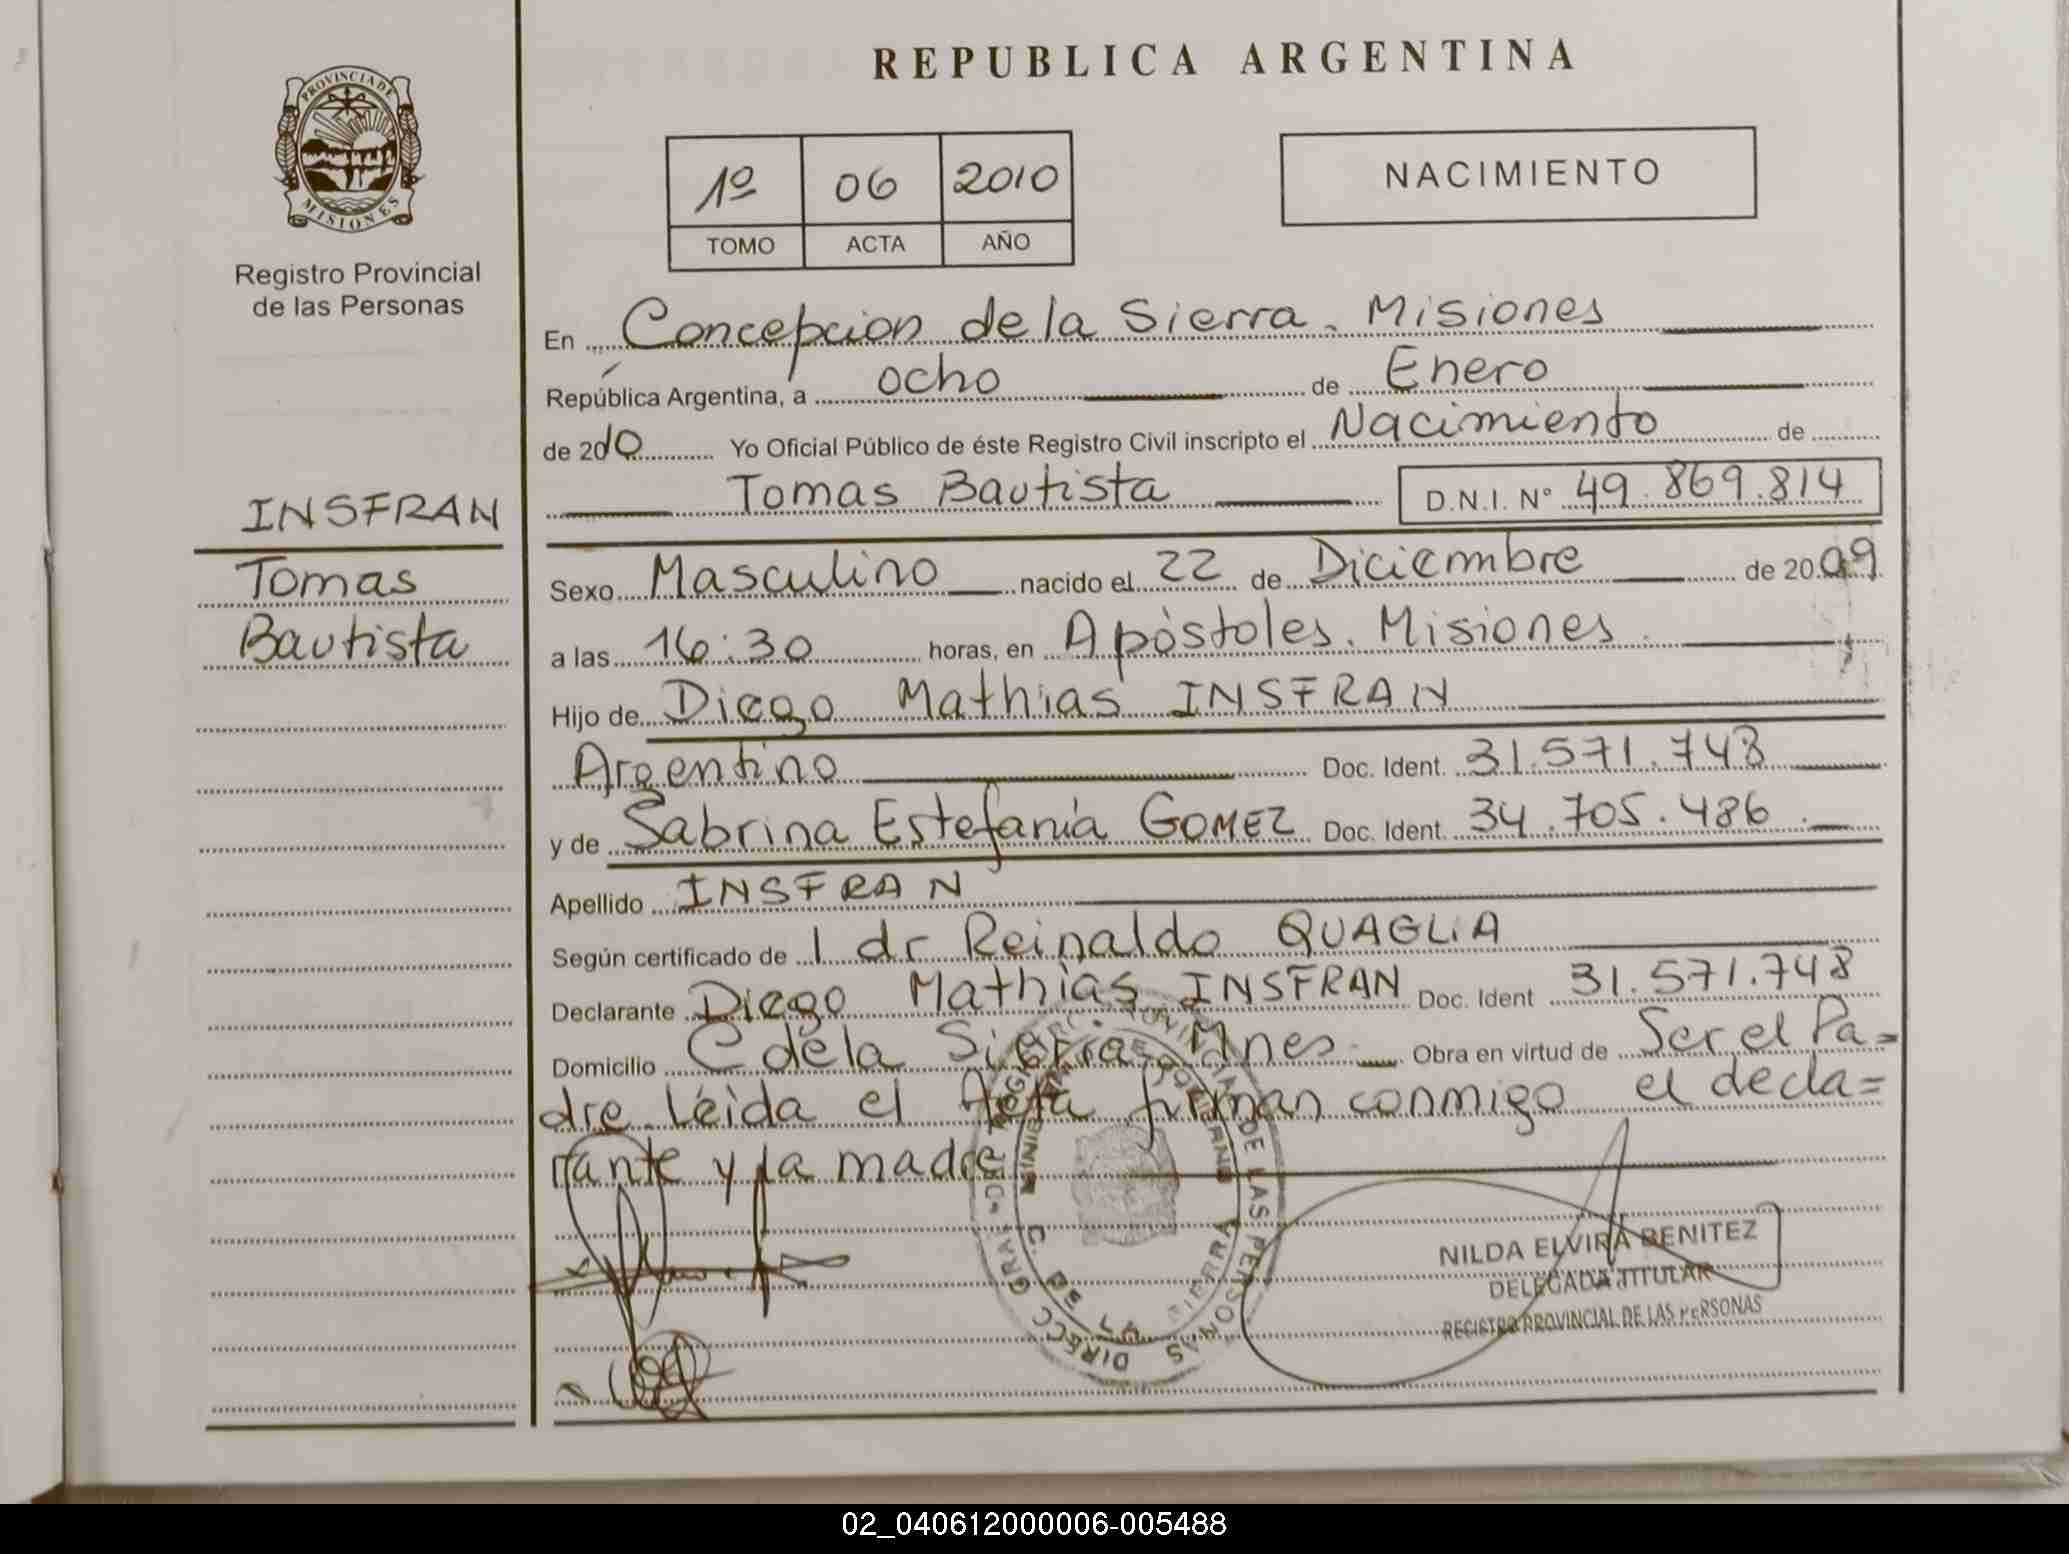 REPUBLICA ARGENTINA
PROVINCIA DE
MISIONES
Registro Provincial
de las Personas
1º 06 2010
TOMO ACTA AÑO
NACIMIENTO
En Concepcion de la Sierra. Misiones
República Argentina, a ocho de Enero
de 2010 Yo Oficial Público de éste Registro Civil inscripto el Nacimiento de
Tomas Bautista D.N.I. Nº 49.869.814
INSFRAN
Tomas
Bautista
Sexo Masculino nacido el 22 de Diciembre de 2009
a las 16:30 horas, en Apóstoles. Misiones
Hijo de Diego Mathias INSFRAN
Argentino Doc. Ident. 31.571.748
y de Sabrina Estefanía GOMEZ Doc. Ident. 34.705.486
Apellido INSFRAN
Según certificado de l dr Reinaldo QUAGLIA
Declarante Diego Mathias INSFRAN Doc. Ident 31.571.748
Domicilio C de la Sierra Mnes Obra en virtud de Ser el Pa=
dre. Leida el Acta firman conmigo el decla=
rante y la madre
DE LAS PERSONAS
C. DE LA SIERRA
NILDA ELVIRA BENITEZ
DELEGADA TITULAR
REGISTRO PROVINCIAL DE LAS PERSONAS
02_040612000006-005488